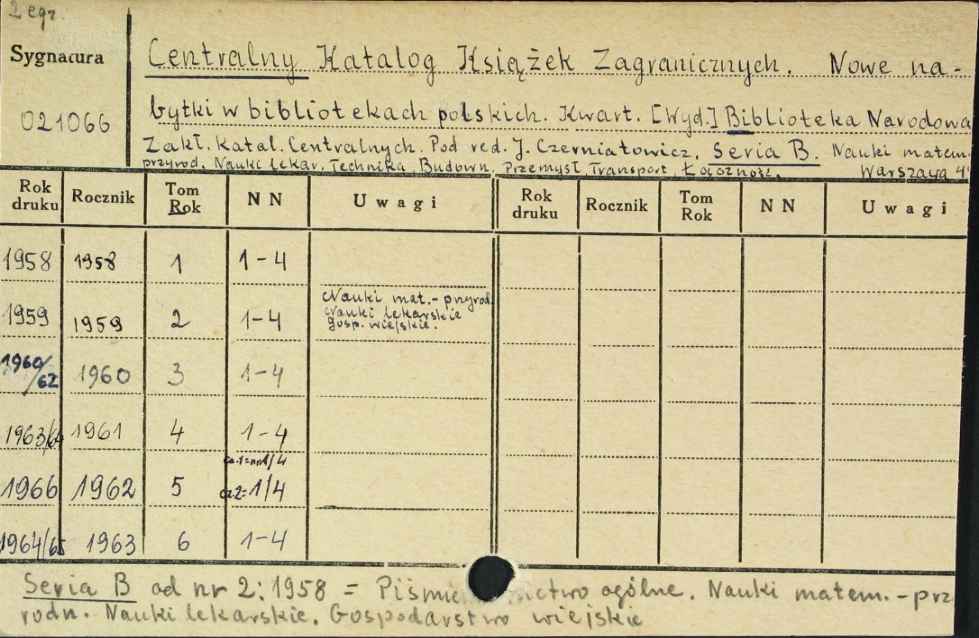 2 egz
Sygnatura
021066
Centralny Katalog Książek Zagranicznych. Nowe na-
bytki w bibliotekach polskich. Kwart. [Wyd.] Biblioteka Narodowa
Zakł. Katal. Centralnych. Pod red. J. Czerniatowicz. Seria B. Nauki matem.
przyrod. Nauki lekar. Technika. Budown. Przemysł. Transport. Łączność. Warszawa
Rok druku Rocznik Tom Rok NN Uwagi Rok druku Rocznik Tom Rok NN Uwagi
1958 1958 1 1-4
1959 1959 2 1-4 Nauki mat.-przyrod.
Nauki lekarskie
gosp. wiejskie.
1960/62 1960 3 1-4
1963/64 1961 4 1-4
cz.1=nr1/4
1966 1962 5 cz2=1/4
1964/65 1963 6 1-4
Seria B od nr 2:1958 = ogólne. Nauki matem.-prz
rodn. Nauki lekarskie. Gospodarstwo wiejskie